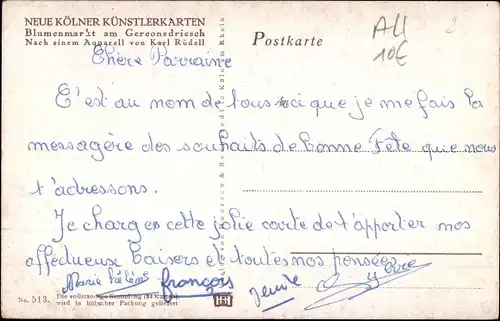 NEUE KÖLNER KÜNSTLERKARTEN
Blumenmarkt am Gereonsdriesch
Nach einem Aquarell von Karl Rüdell
Postkarte
All
10€
Chère Marraine
C'est au nom de tous ici que je me fais la
messagère des souhaits de bonne Fête que nous
t'adressons.
Je charge cette jolie carte de t'apporter nos
affectueux baisers et toutes nos pensées
Marie Hélène françois
No. 513.
Die vollständige Sammlung (84 Karten)
wird in hübscher Packung geliefert
Köln am Rhein